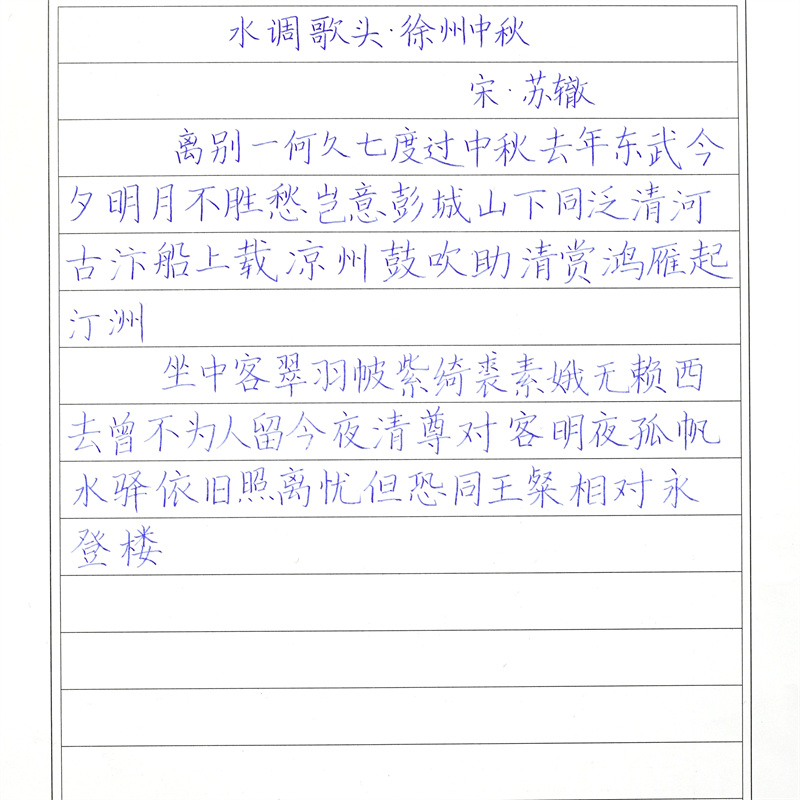 水调歌头·徐州中秋
宋·苏辙
离别一何久七度过中秋去年东武今
夕明月不胜愁岂意彭城山下同泛清河
古汴船上载凉州鼓吹助清赏鸿雁起
汀洲
坐中客翠羽帔紫绮裘素娥无赖西
去曾不为人留今夜清尊对客明夜孤帆
水驿依旧照离忧但恐同王粲相对永
登楼